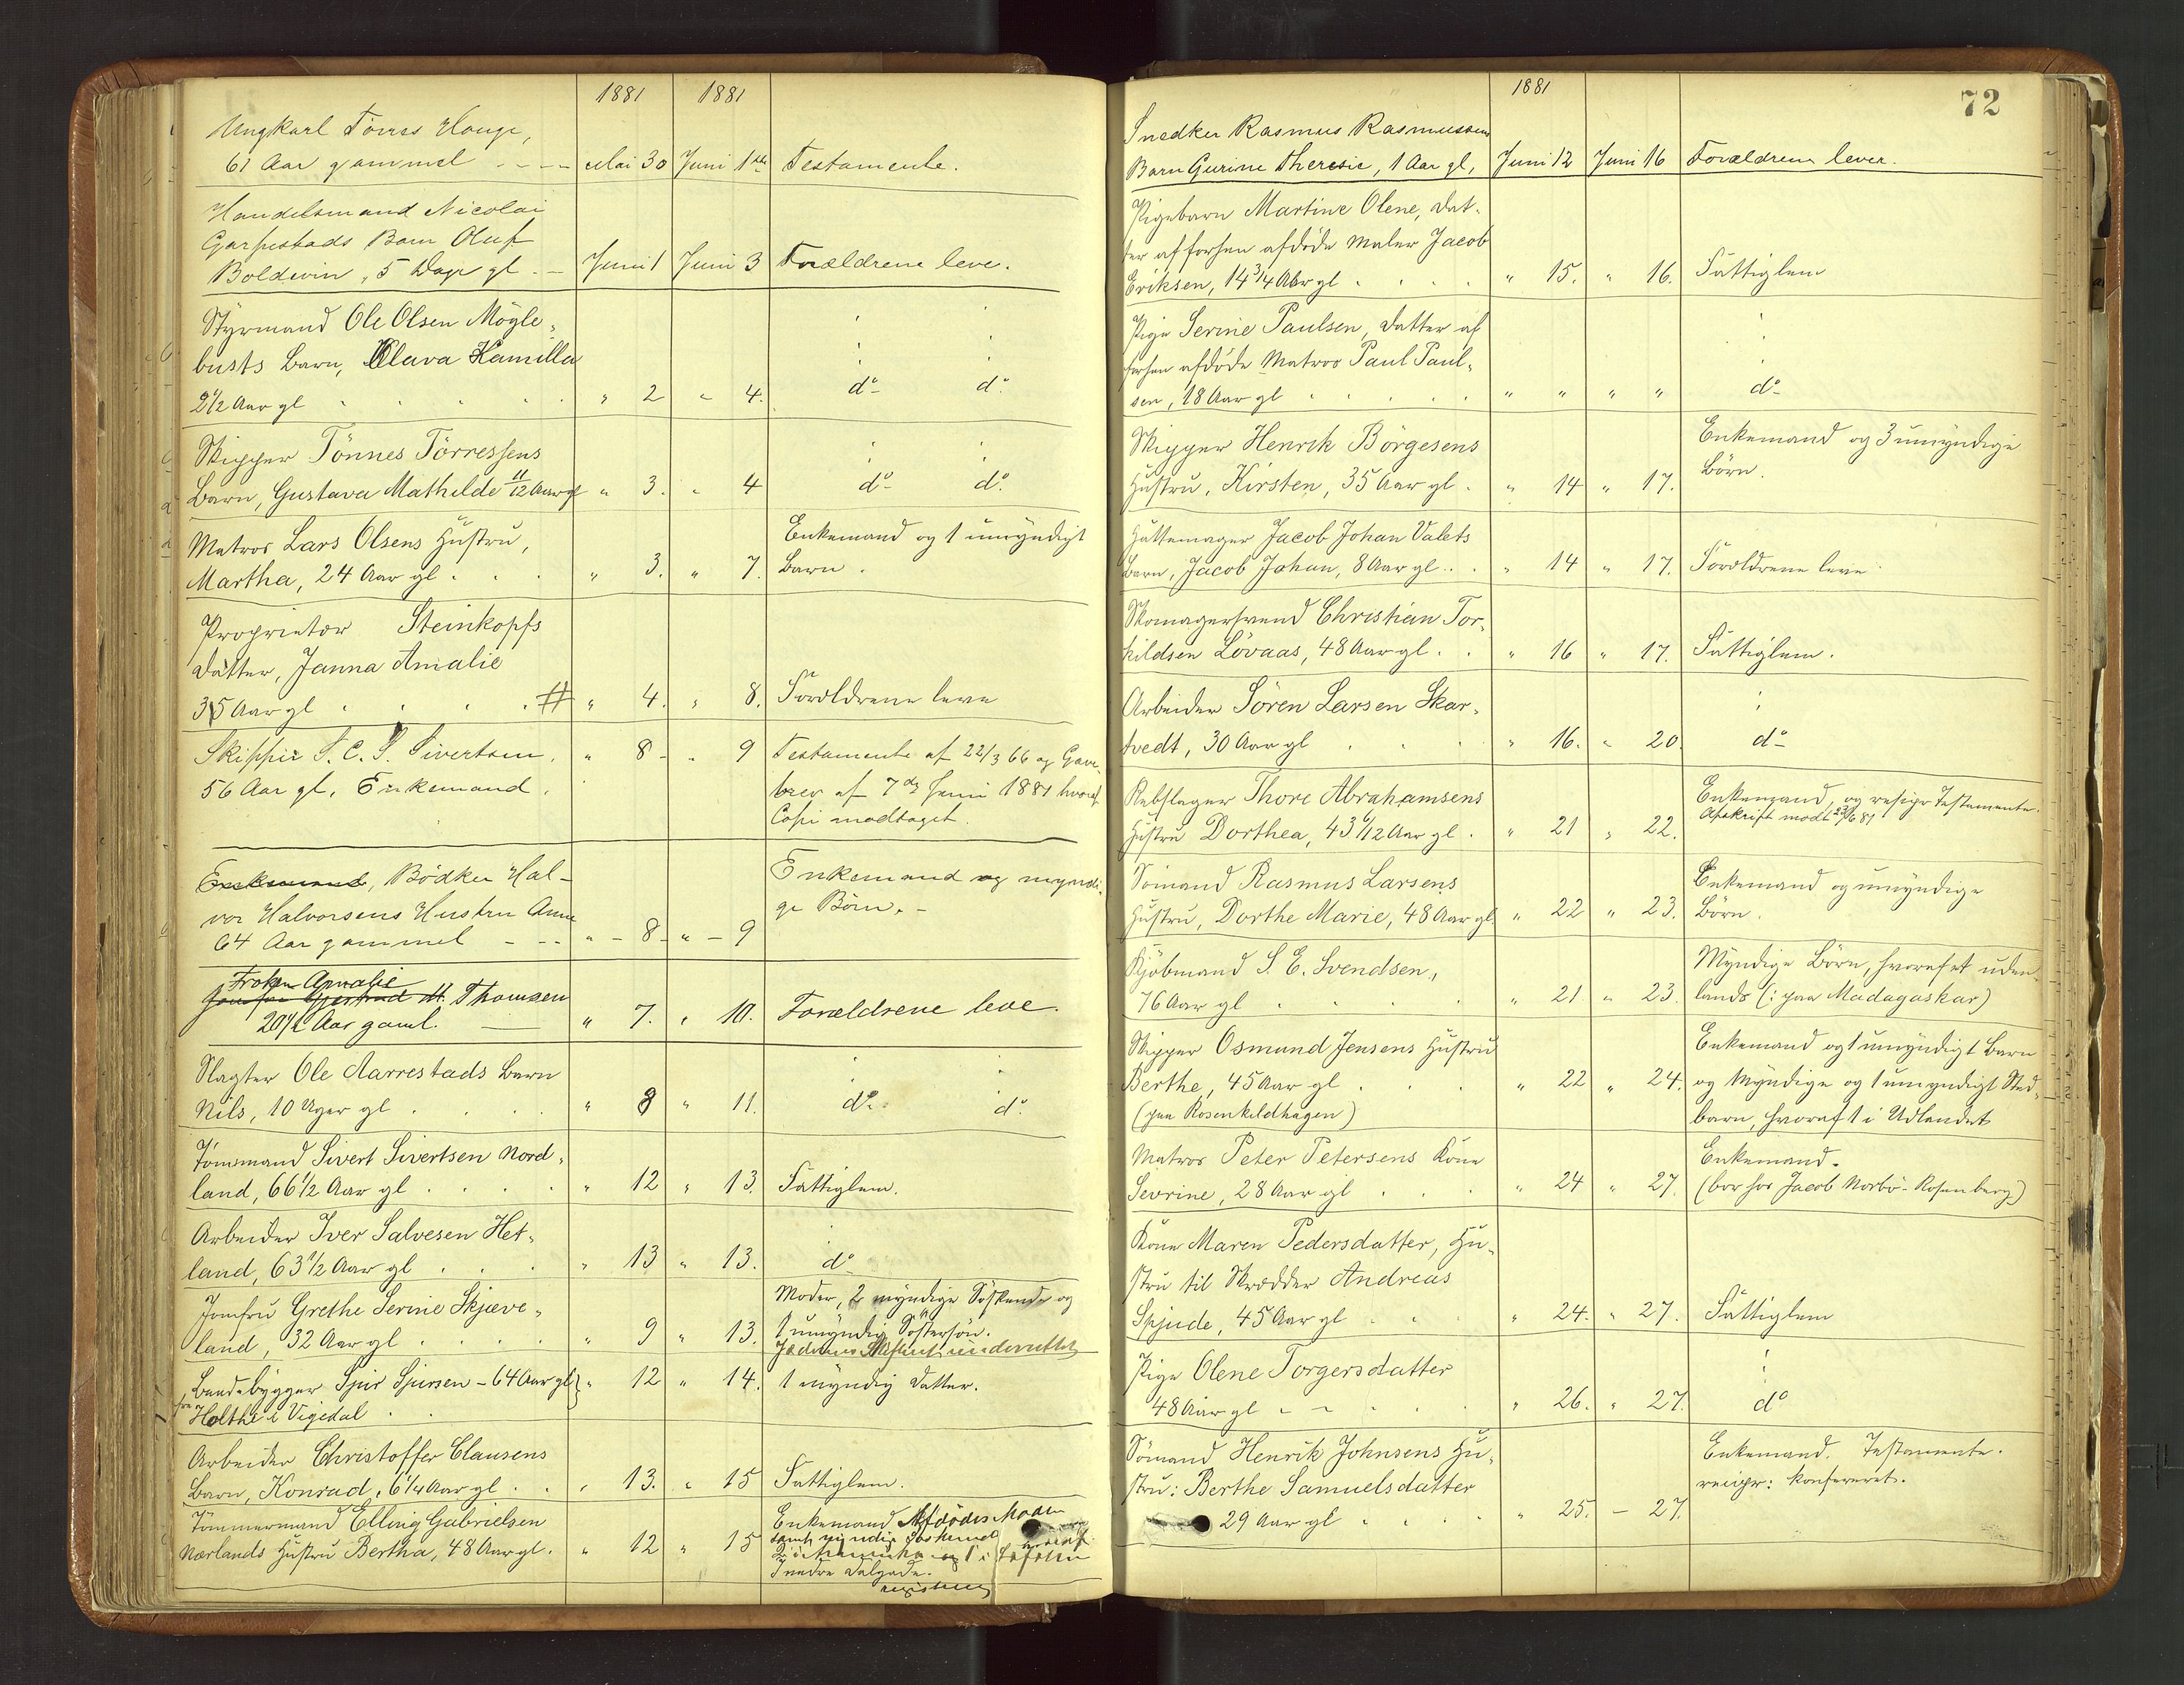 1881 1881
Ungkarl Tönnes Houge,
61 Aar gammel - - - Mai 30 Juni 1ste Testamente.
Handelsmand Nicolai
Garpestads Barn Oluf
Boldevin, 5 Dage gl. - Juni 1 Juni 3 Forældrene leve.
Styrmand Ole Olsen Mögle-
busts Barn, Klava Kamilla
2 1/2 Aar gl " 2 " 4. do do.
Skipper Tönnes Törressens
Barn, Gustava Mathilde 11/12 Aar gl " 3. " 4 do do.
Matros Lars Olsens Hustru, Enkemand og 1 umyndigt
Martha, 24 Aar gl . . . " 3. " 7. Barn.
Proprietær Steinkopfs
Datter, Janna Amalie
35 Aar gl . . . . # " 4. " 8. Forældrene leve
Skipper S. C. S. Sivertsen, " 8 - " 9 Testamente af 22/3 66 og Gave-
56 Aar gl. Enkemand. brev af 7de Juni 1881 hvoraf
Copi modtaget.
Enkemand, Bödker Hal- Enkemand og myndi-
vor Halvorsens Hustru Anne ge Börn. -
64 Aar gammel - - - " - 8 - " - 9
Froken Amalie
Jomfru Gjertrud M. Thomsen
20 1/2 Aar gaml. " 7. " 10. Forældrene leve.
Slagter Ole Aarrestads Barn
Nils, 10 Uger gl . . . . " 8 " 11. do. do.
Tömmand Sivert Sivertsen Nord-
land, 66 1/2 Aar gl . . . . " 12 " 13. Fattiglem.
Arbeider Iver Salvesen Het-
land, 63 1/2 Aar gl . . . " 13 " 13. do
Jomfru Grethe Serine Skjæve- Moder, 2 myndige Söskende og
land, 32 Aar gl . . . . " 9 " 13. 1 umyndig Söstersön.
Jæderens Skifteret underrettet
Landsbygger Sjur Sjursen - 64 Aar gl } " 12 " 14. 1 myndig Datter.
fra Holthe i Vigedal . .
Arbeider Christoffer Clausens
Barn, Konrad, 6 1/4 Aar gl . . " 13. " 15 Fattiglem.
Tömmermand Elling Gabrielsen Enkemand Afdödes Moder
Nærlands Hustru Bertha, 48 Aar gl. " 12 " 15 samt myndige Söskende hvoraf
2 i Amerika og 1 i
Nedre Dalgade.
1881 72
Snedker Rasmus Rasmussens
Barn Gurine Theresie, 1 Aar gl, Juni 12 Juni 16 Forældrene lever.
Pigebarn Martine Olene, Dat-
ter af forhen afdöde Maler Jacob
Eriksen, 14 3/4 Aar gl . . . . " 15. " 16. Fattiglem
Pige Serine Paulsen, Datter af
forhen afdöde Matros Paul Paul-
sen, 18 Aar gl . . . . . " " " " do
Skipper Henrik Börgesens Enkemand og 3 umyndige
Hustru, Kirsten, 35 Aar gl. " 14 " 17. Börn.
Hattemager Jacob Johan Valets
Barn, Jacob Johan, 8 Aar gl. . . " 14 " 17. Forældrene leve
Skomagersvend Christian Tor-
kildsen Lövaas, 48 Aar gl. . " 16 " 17. Fattiglem.
Arbeider Sören Larsen Skar-
tvedt, 30 Aar gl . . . " 16. " 20. do
Rebslager Thore Abrahamsens Enkemand, og recipr Testamente.
Hustru Dorthea, 43 6/12 Aar gl. " 21 " 22. Afskrift modt 23/6 81
Sömand Rasmus Larsens Enkemand og umyndige
Hustru, Dorthe Marie, 48 Aar gl " 22 " 23. Börn.
Kjöbmand S. E. Svendsen, Myndige Börn, hvoraf et uden-
76 Aar gl . . . . " 21 " 23. lands (: paa Madagaskar)
Skipper Osmund Jensens Hustru Enkemand og 1 umyndigt Barn
Berthe, 45 Aar gl . . . " 22 " 24. og Myndige og 1 umyndigt Sted-
(paa Rosenkildhagen) barn, hvoraf 1 i Udlandet
Matros Peter Petersens Kone Enkemand.
Sevrine, 28 Aar gl . . . " 24 " 27. (bor hos Jacob Norbö - Rosenberg)
Kone Maren Pedersdatter, Hu-
stru til Skrædder Andreas
Spjude, 45 Aar gl . . " 24. " 27. Fattiglem
Pige Olene Torgersdatter
48 Aar gl - - . . " 26. " 27. do
Sömand Henrik Johnsens Hu- Enkemand. Testamente.
stru: Berthe Samuelsdatter recipr: konfereret.
29 Aar gl . . . . " 25. - 27.